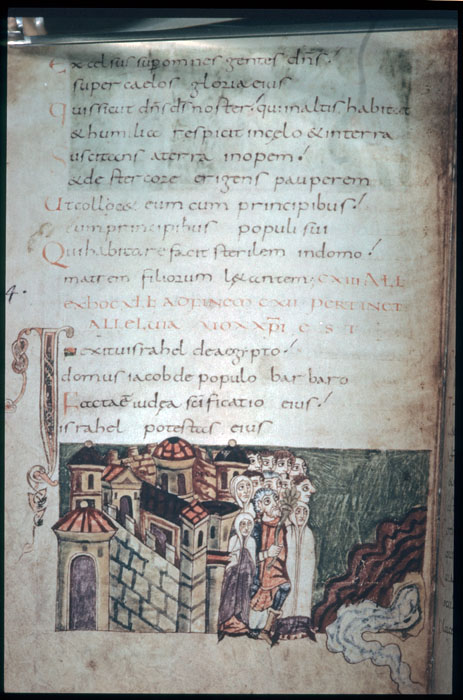 Excelsus sup omnes gentes dns!
super caelos gloria eius
quis sicut dns ds noster! qui in altis habitat
& humilia respicit in celo & in terra
Suscitans a terra inopem!
& de stercore erigens pauperem
Ut collocet eum cum principibus!
cum principibus populi sui
Qui habitare facit sterilem in domo!
matrem filiorum l&antem; CXIII ALL
ALLELUIA
4.
In exitu israhel de aegypto!
domus iacob de populo barbaro
Facta e iudea scificatio eius!
israhel potestas eius